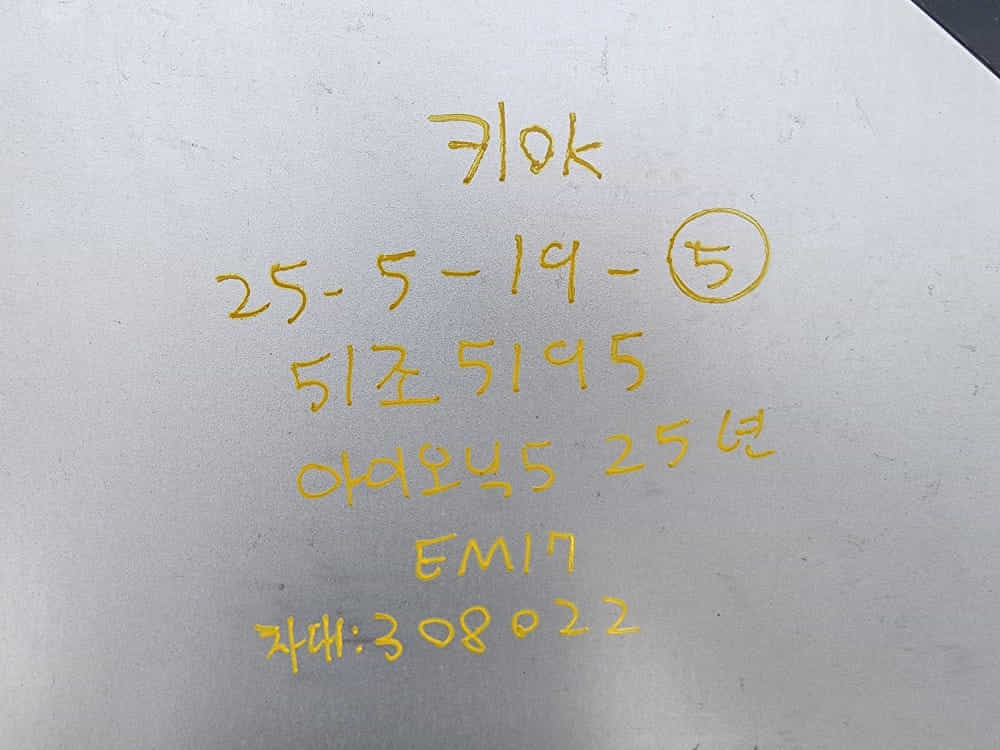 키OK
25-5-19-⑤
51조5195
아이오닉5 25년
EM17
차대:308022